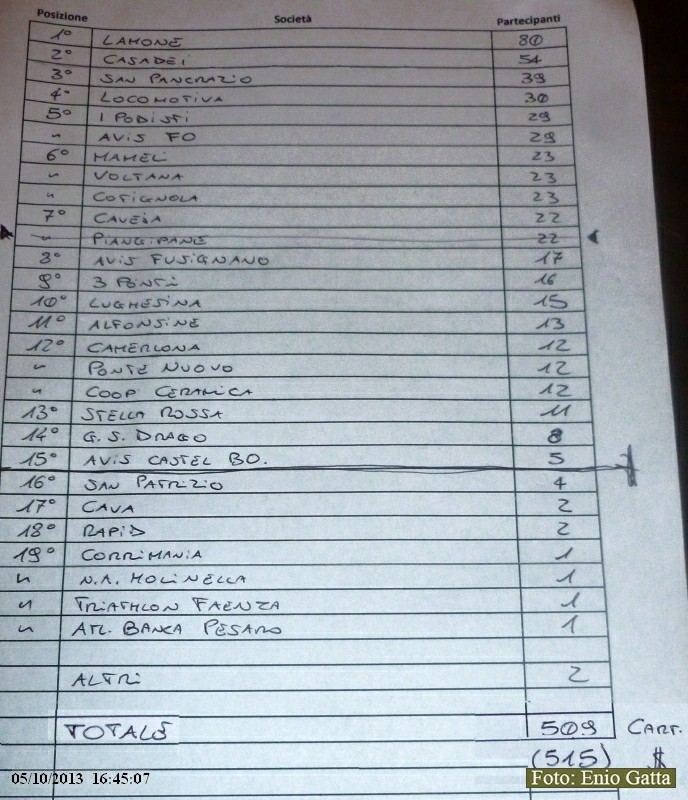 Posizione Società Partecipanti
1° LAMONE 80
2° CASADEI 54
3° SAN PANCRAZIO 39
4° LOCOMOTIVA 30
5° I PODISTI 29
" AVIS FO 29
6° MAMELI 23
" VOLTANA 23
" COTIGNOLA 23
7° CAVEJA 22
" PIANGIPANE 22
8° AVIS FUSIGNANO 17
9° 3 PONTI 16
10° LUGHESINA 15
11° ALFONSINE 13
12° CAMERLONA 12
" PONTE NUOVO 12
" COOP CERAMICA 12
13° STELLA ROSSA 11
14° G.S. DRAGO 8
15° AVIS CASTEL BO. 5
16° SAN PATRIZIO 4
17° CAVA 2
18° RAPID 2
19° CORRIMANIA 1
" N.A. MOLINELLA 1
" TRIATHLON FAENZA 1
" ATL. BANCA PESARO 1
ALTRI 2
TOTALE 509 CART.
(515) $
05/10/2013 16:45:07
Foto: Enio Gatta